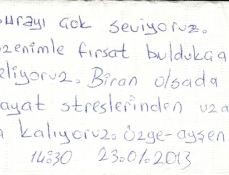 burayı çok seviyoruz.
zenimle fırsat buldukça
eliyoruz. Biran olsada
ayat streslerinden uza
kalıyoruz. özge-ayşen
14:30 23.01.2013